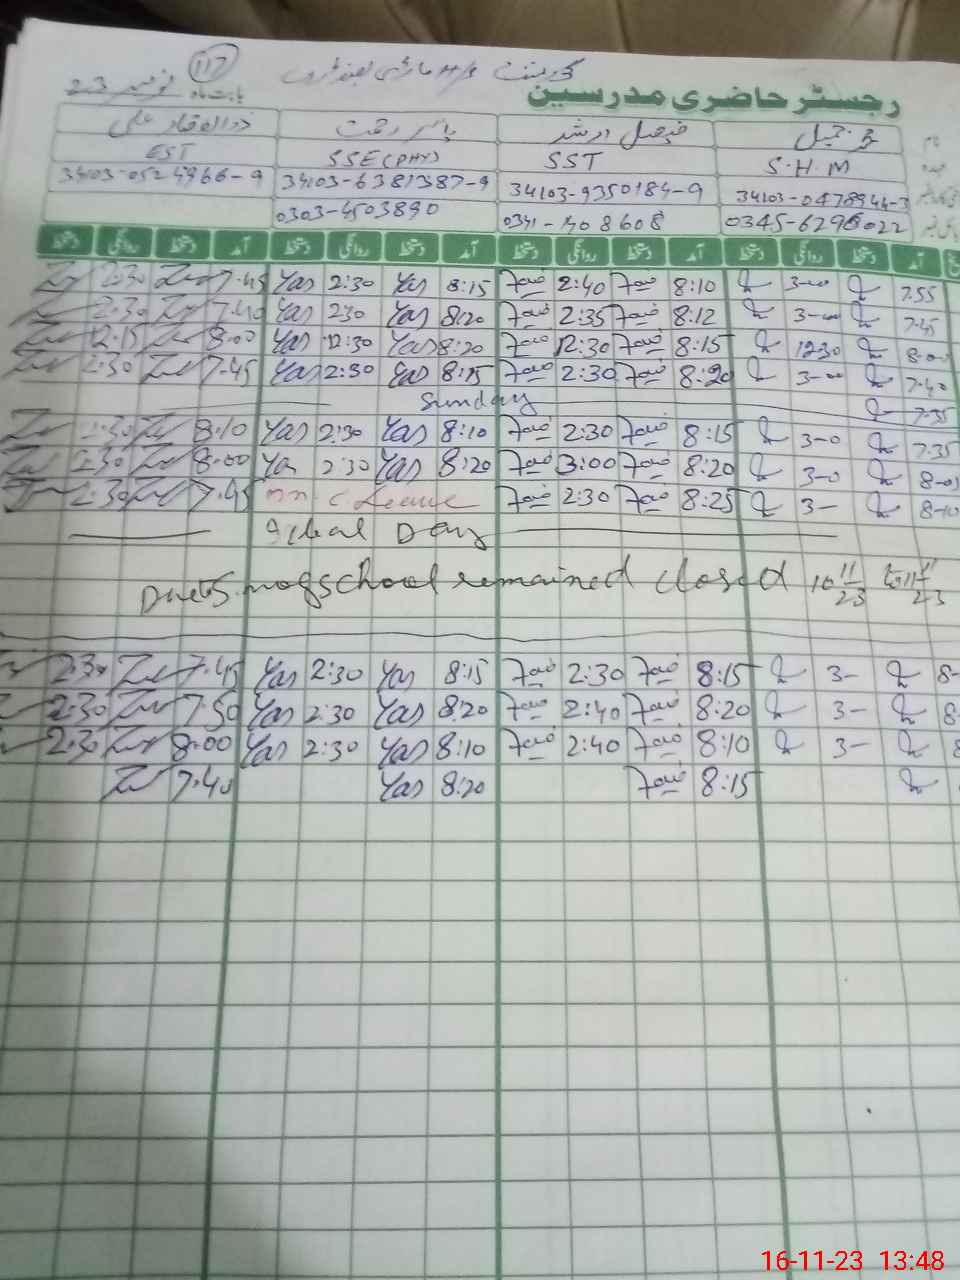 117
گورنمنٹ
رجسٹر حاضری مدرسین
بابت ماہ نومبر 23
ذوالفقار علی یاسر رفعت فیصل ارشد محمد جمیل
EST SSE(PHY) SST S.H.M
34103-0524966-9 34103-6381387-9 34103-9350184-9 34103-0478944-3
0303-4503890 0341-1408608 0345-6296022
دستخط روانگی دستخط آمد دستخط روانگی دستخط آمد دستخط روانگی دستخط آمد دستخط روانگی دستخط آمد
2:30 7.45 Yas 2:30 Yas 8:15 2:40 8:10 3-00 7.55
2:30 7.40 Yas 230 Yas 8:20 2:35 8:12 3-00 7.45
12.15 8.00 Yas 12:30 Yas 8:20 12:30 8:15 1230 8.00
2:30 7.45 Yas 2:30 Yas 8:15 2:30 8:20 3-00 7.40
Sunday 7.35
2:30 8.10 Yas 2:30 Yas 8:10 2:30 8:15 3-0 7.35
2:30 8.00 Ya 2:30 Yas 8:20 3:00 8:20 3-0 8-05
2:30 7.45 C. Leave 2:30 8:25 3- 8-10
Iqbal Day
Due to smog school remained closed 10 11/23 to 11 11/23
2:30 7.45 Yas 2:30 Yas 8:15 2:30 8:15 3- 8-
2:30 7.50 Yas 2:30 Yas 8:20 2:40 8:20 3- 8-
2:30 8.00 Yas 2:30 Yas 8:10 2:40 8:10 3- 8
7.40 Yas 8:20 8:15
16-11-23 13:48